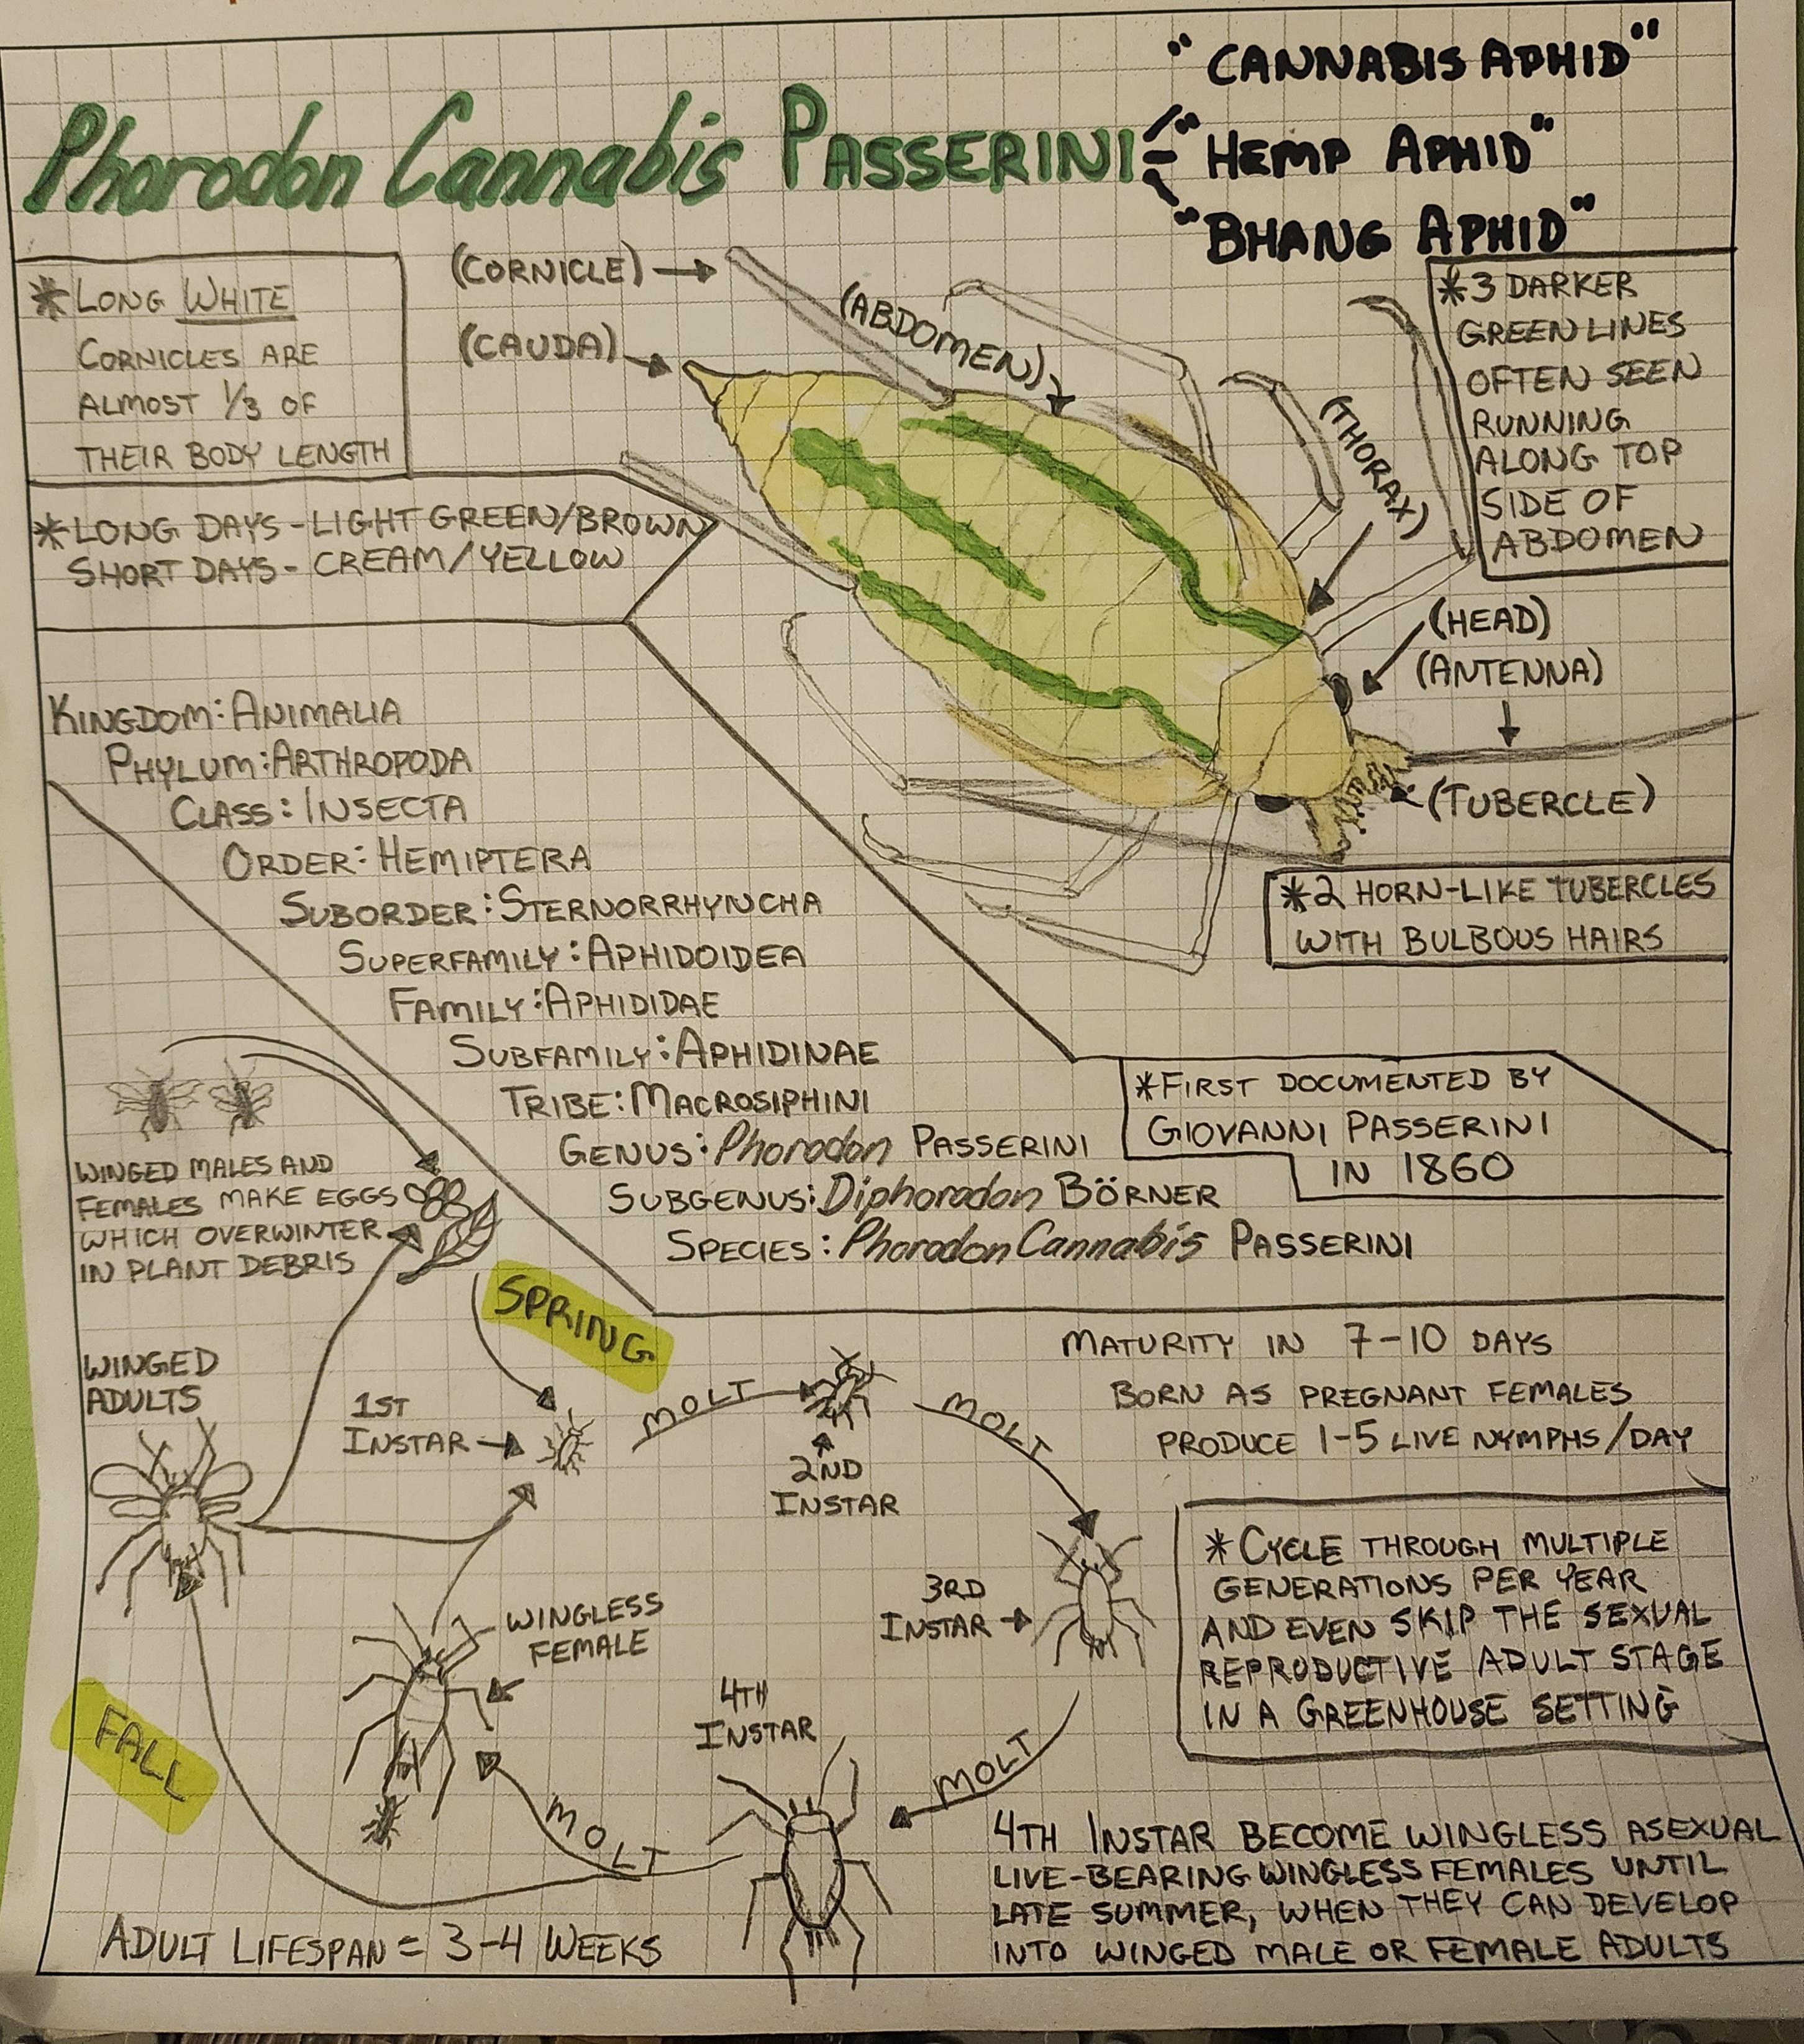 "CANNABIS APHID"
Phorodon Cannabis PASSERINI
"HEMP APHID"
"BHANG APHID"
*LONG WHITE
CORNICLES ARE
ALMOST 1/3 OF
THEIR BODY LENGTH
(CORNICLE)
(CAUDA)
(ABDOMEN)
(THORAX)
*3 DARKER
GREEN LINES
OFTEN SEEN
RUNNING
ALONG TOP
SIDE OF
ABDOMEN
*LONG DAYS - LIGHT GREEN/BROWN
SHORT DAYS - CREAM/YELLOW
(HEAD)
(ANTENNA)
(TUBERCLE)
*2 HORN-LIKE TUBERCLES
WITH BULBOUS HAIRS
KINGDOM: ANIMALIA
PHYLUM: ARTHROPODA
CLASS: INSECTA
ORDER: HEMIPTERA
SUBORDER: STERNORRHYNCHA
SUPERFAMILY: APHIDOIDEA
FAMILY: APHIDIDAE
SUBFAMILY: APHIDINAE
TRIBE: MACROSIPHINI
GENUS: Phorodon PASSERINI
SUBGENUS: Diphorodon BÖRNER
SPECIES: Phorodon Cannabis PASSERINI
*FIRST DOCUMENTED BY
GIOVANNI PASSERINI
IN 1860
WINGED MALES AND
FEMALES MAKE EGGS
WHICH OVERWINTER
IN PLANT DEBRIS
SPRING
WINGED
ADULTS
1ST
INSTAR
MOLT
2ND
INSTAR
MOLT
MATURITY IN 7-10 DAYS
BORN AS PREGNANT FEMALES
PRODUCE 1-5 LIVE NYMPHS/DAY
3RD
INSTAR
*CYCLE THROUGH MULTIPLE
GENERATIONS PER YEAR
AND EVEN SKIP THE SEXUAL
REPRODUCTIVE ADULT STAGE
IN A GREENHOUSE SETTING
WINGLESS
FEMALE
4TH
INSTAR
MOLT
FALL
MOLT
4TH INSTAR BECOME WINGLESS ASEXUAL
LIVE-BEARING WINGLESS FEMALES UNTIL
LATE SUMMER, WHEN THEY CAN DEVELOP
INTO WINGED MALE OR FEMALE ADULTS
ADULT LIFESPAN = 3-4 WEEKS